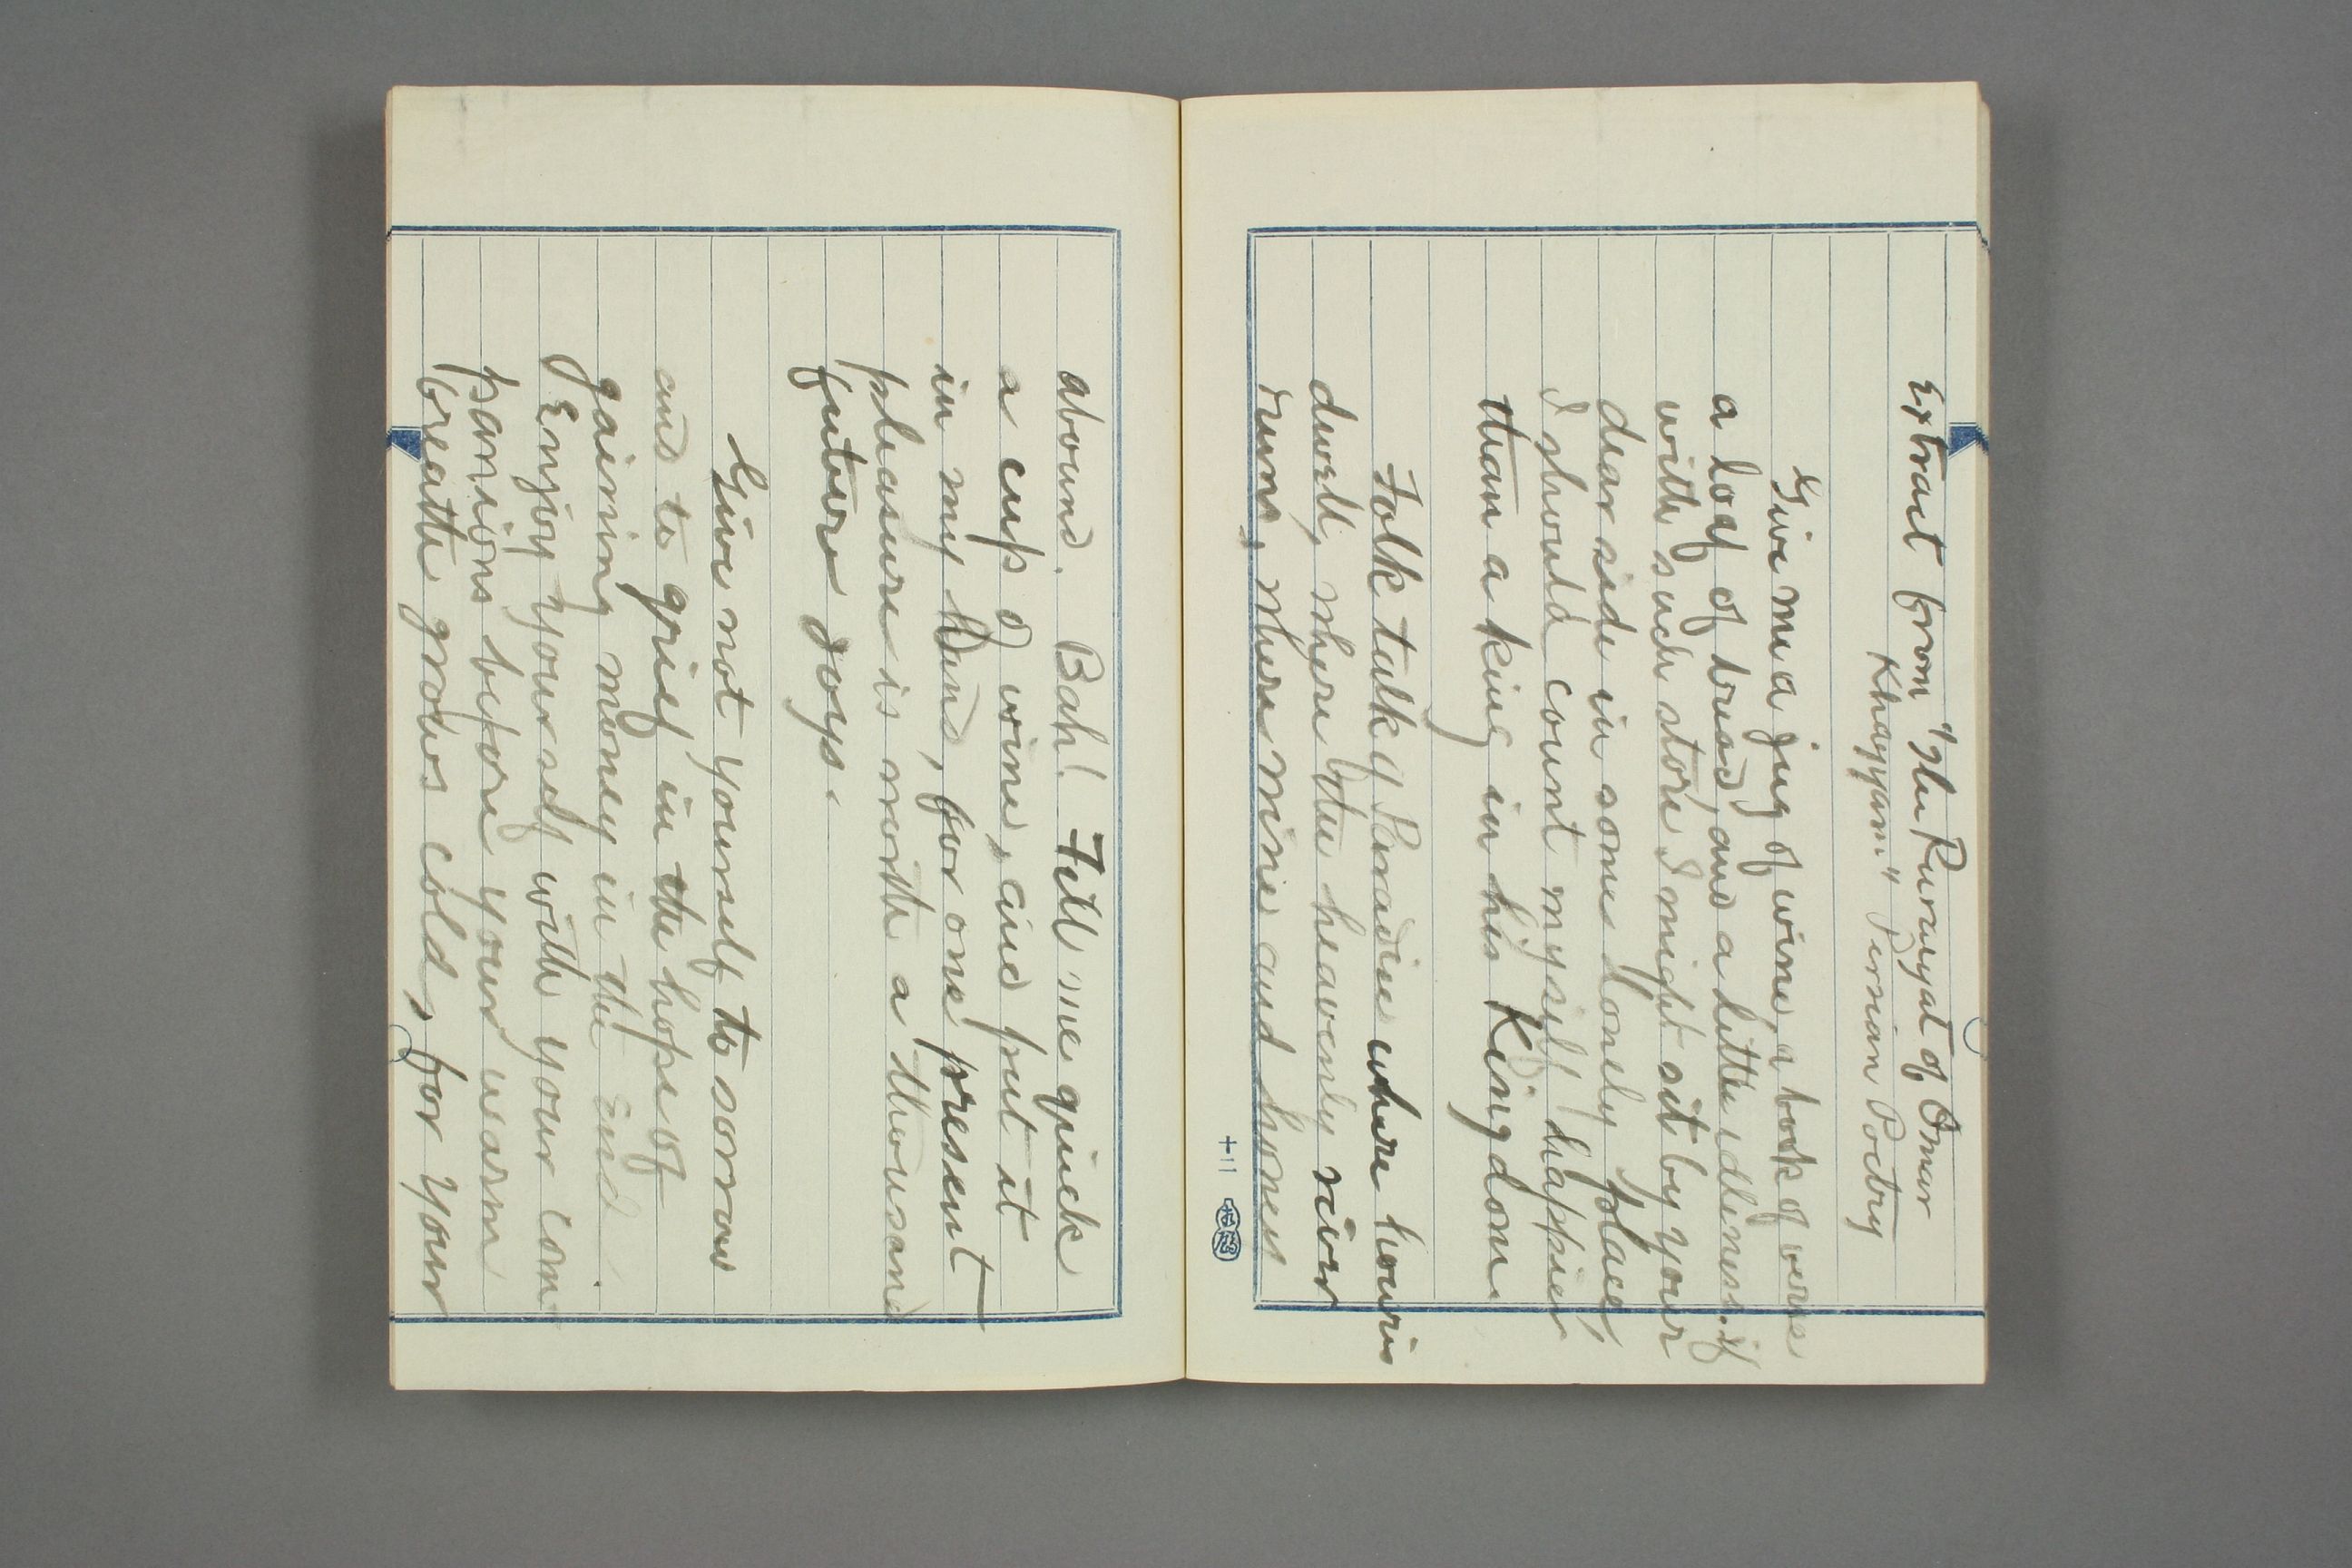 Extrait from "The Ruraiyat of Omar
Khayyam" Persian Poetry
Give me a jug of wine a book of verse
a loaf of bread, and a little idleness. if
with such store I might sit by your
dear side in some lonely place,
I should count myself happier
than a king in his Kingdom
Folk talk of Paradise where houris
dwell, where the heavenly river
runs, where wine and honey
abound. Bah! Fill me quick
a cup of wine, and put it
in my hand, for one present
pleasure is worth a thousand
future joys.
Give not yourself to sorrow
and to grief in the hope of
gaining money in the end.
Enjoy yourself with your com-
panions before your warm
breath grows cold, for your
十11